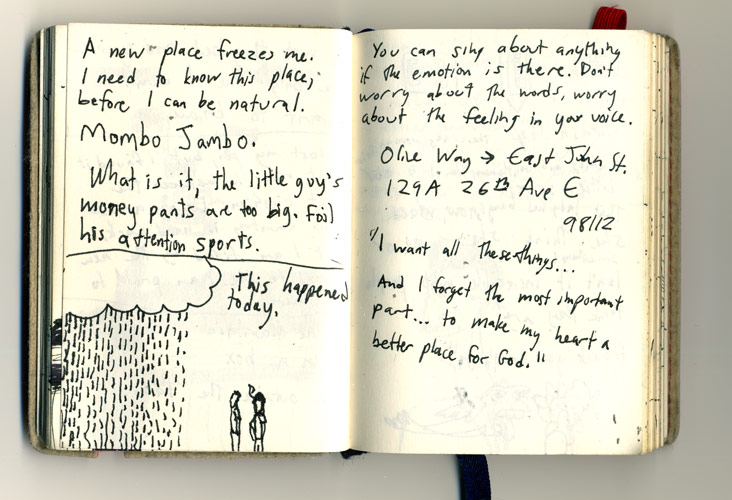 A new place freezes me.
I need to know this place,
before I can be natural.
Mombo Jambo.
What is it, the little guy's
money pants are too big. Foil
his attention sports.
This happened
today.
You can sing about anything
if the emotion is there. Don't
worry about the words, worry
about the feeling in your voice.
Olive Way → East John St.
129A 26th Ave E
98112
"I want all these things...
And I forget the most important
part... to make my heart a
better place for God."